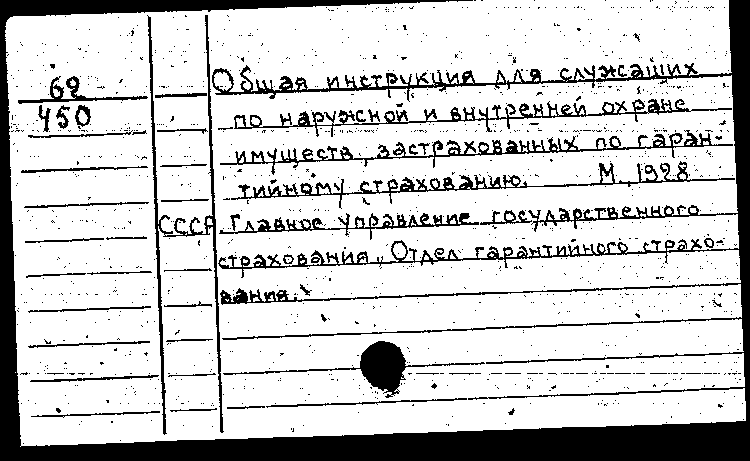 62
450
Общая инструкция для служащих
по наружной и внутренней охране
имуществ, застрахованных по гаран-
тийному страхованию. М., 1928
СССР. Главное управление государственного
страхования. Отдел гарантийного страхо-
вания.